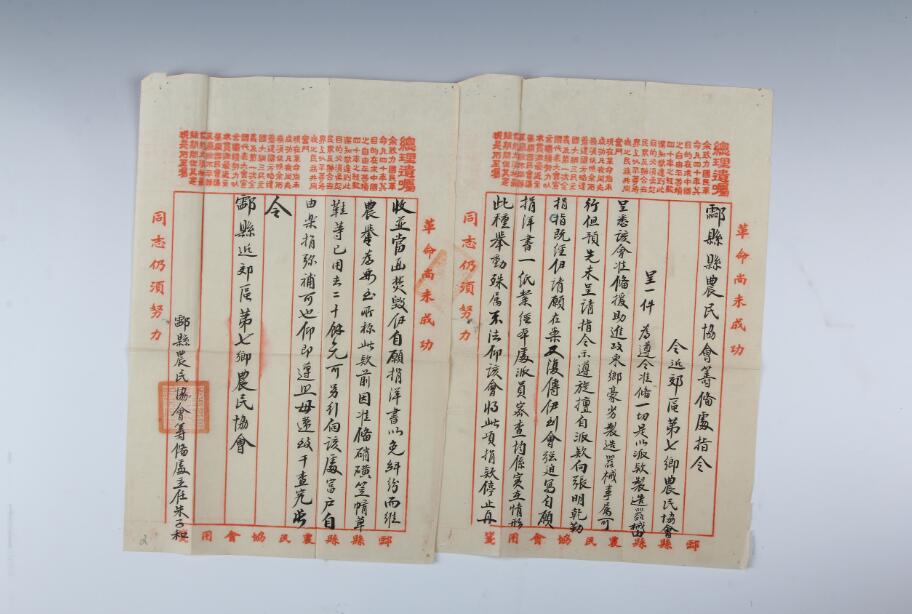 總理遺囑
革命尚未成功
同志仍須努力
酃縣縣農民協會籌備處指令
令近郊區第七鄉農民協會
呈一件為遵令准備一切是以派款製造器械由
呈悉該會准備援助進攻東鄉豪劣製造器械事屬可
行但預先未呈請指令示遵旋擅自派款向張明乾勤
捐指既經伊請願在案又復傳伊到會強迫寫自願
捐洋書一紙業經本處派員密查均係實在情形
此種舉動殊屬不法仰該會將此項捐款停止再
酃縣縣農民協會用箋
革命尚未成功
同志仍須努力
總理遺囑
收並當面焚毀伊自願捐洋書以免糾紛而維
農譽為要至所稱此款前因准備硝磺笠帽草
鞋等已用去二十餘元可另引向該處富戶自
由樂捐弥補可也仰即遵照毋違致干查究此
令
酃縣近郊區第七鄉農民協會
酃縣農民協會籌備處主任朱子和
酃縣縣農民協會用箋
2